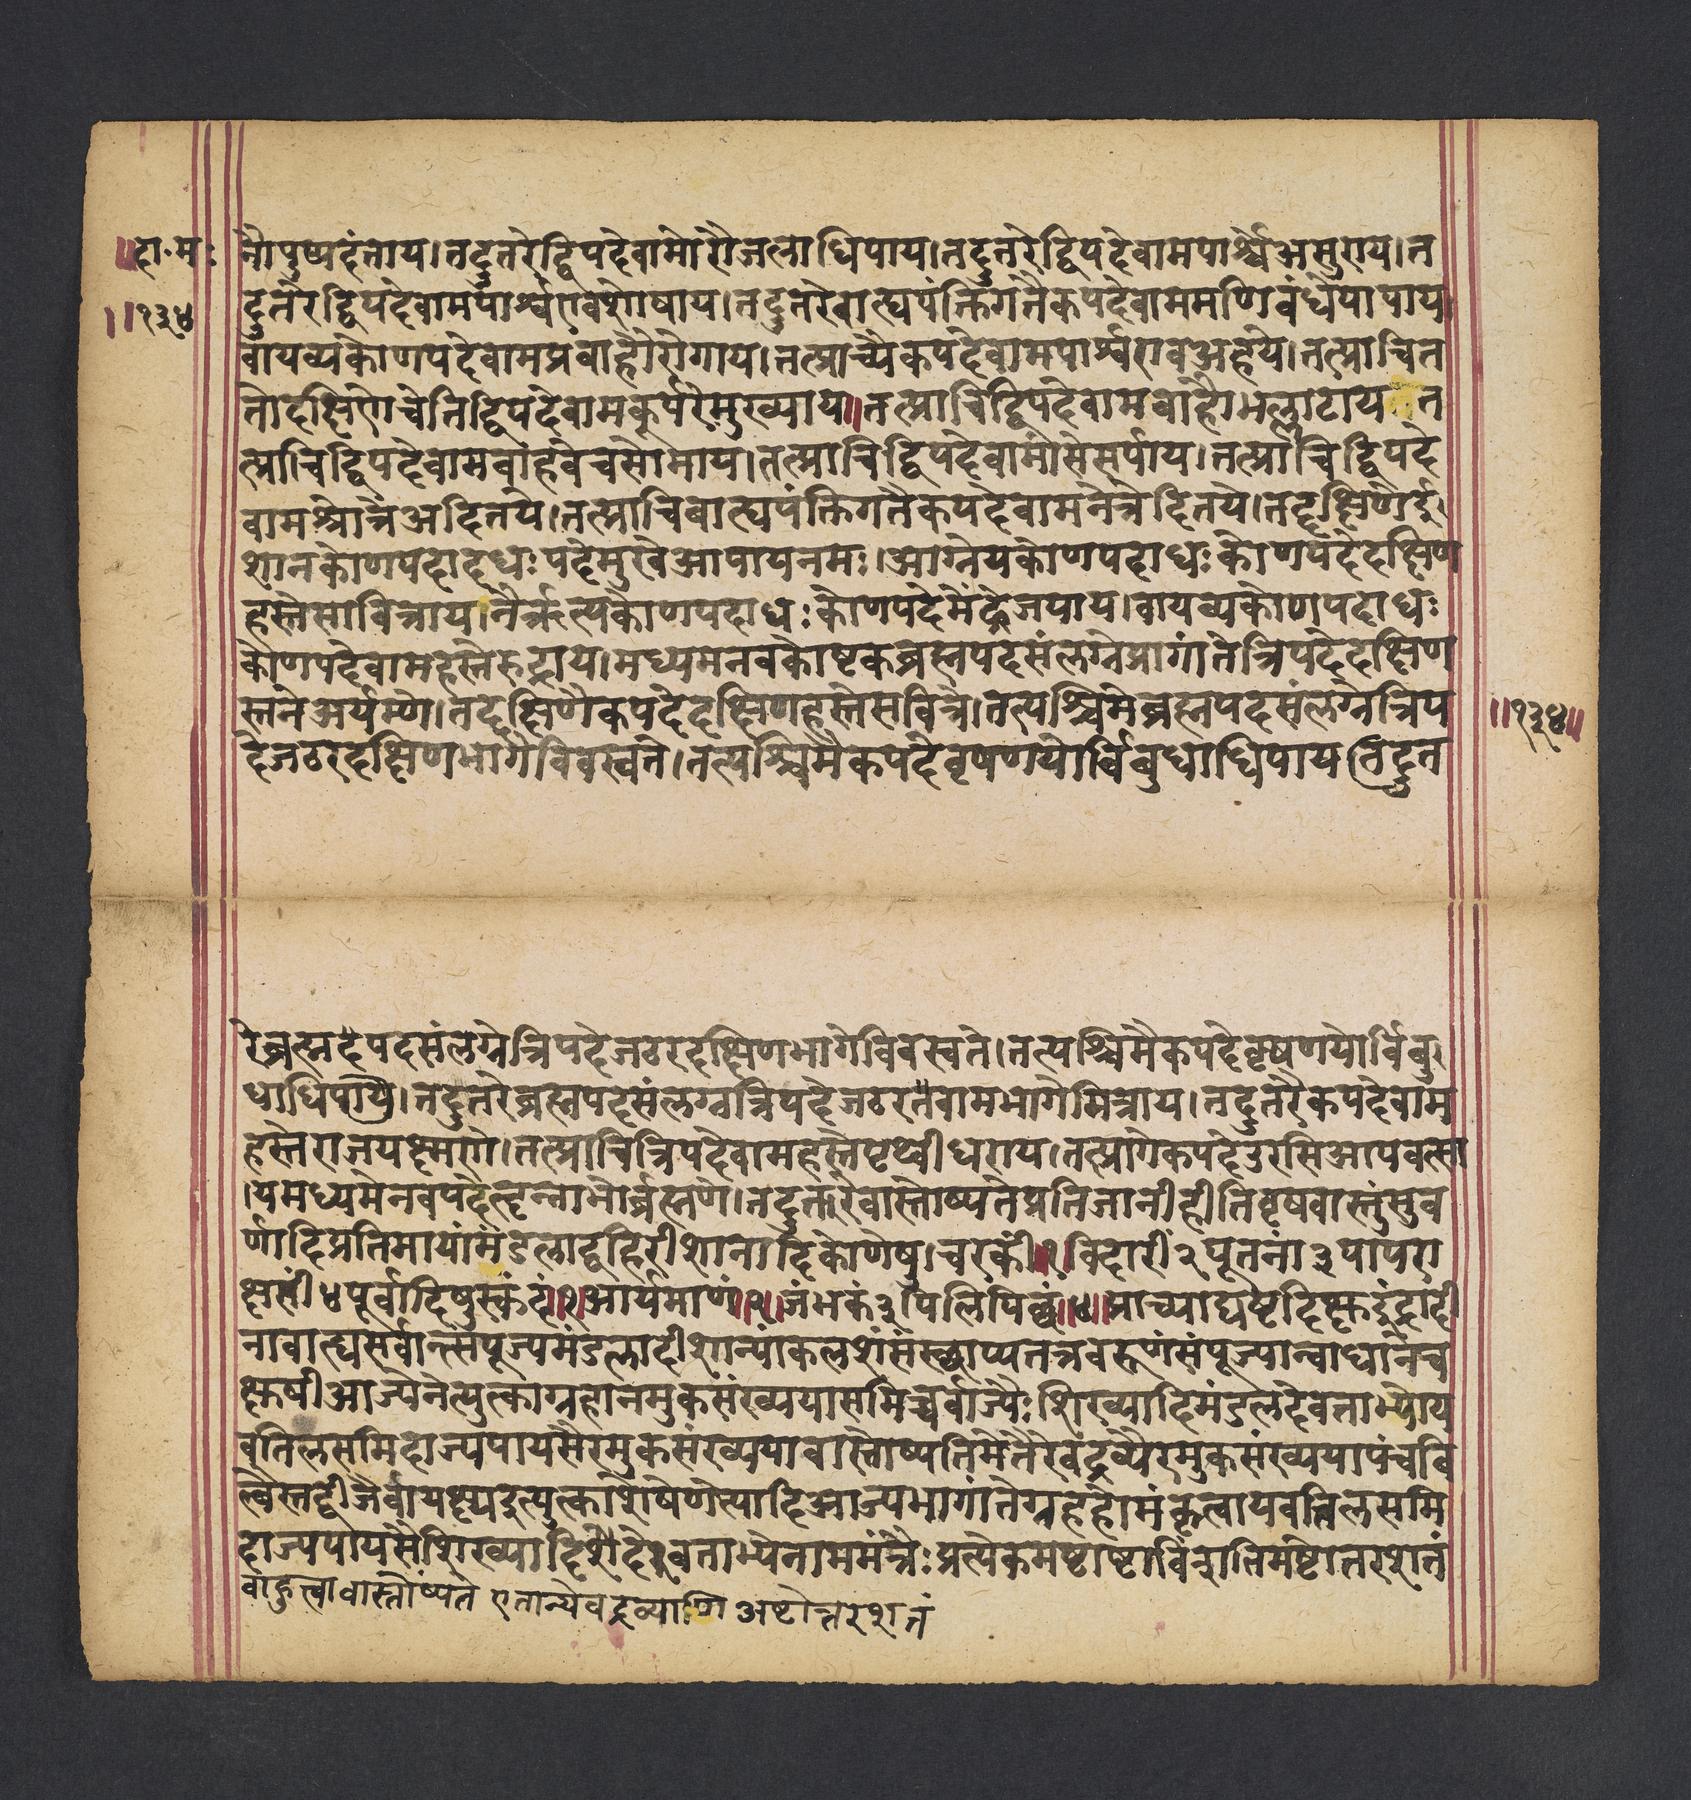 ॥दा॰म॰
॥१३४
नौपुष्पदंताय।तदुत्तरेद्विपदेवामोरौजलाधिपाय।तदुत्तरेद्विपदेवामपार्श्वेअसुराय।त
दुत्तरेद्विपदेवामपार्श्वएवशोषाय।तदुत्तरेबाह्यपंक्तिगतैकपदेवाममणिबंधेपापाय।
वायव्यकोणपदेवामप्रबाहौरोगाय।तत्प्राच्यैकपदेवामपार्श्वएवअहये।तत्प्राचित
तोदक्षिणेचेतिद्विपदेवामकूर्परेमुख्याय॥तत्प्राचिद्विपदेवामबाहौभल्लाटाय त
त्प्राचिद्विपदेवामबाहवेचसोमाय।तत्प्राचिद्विपदेवामांसेसर्पाय।तत्प्राचिद्विपदे
वामश्रोत्रेअदितये।तत्प्राचिबाह्यपंक्तिगतैकपदेवामनेत्रेदितये।तद्दक्षिणेई
शानकोणपदादधःपदेमुखेआपायनमः।आग्नेयकोणपदाधःकोणपदेदक्षिण
हस्तेसावित्राय।नैर्ऋत्यकोणपदाधःकोणपदेमेंढ्रेजयाय।वायव्यकोणपदाधः
कोणपदेवामहस्तेरुद्राय।मध्यमनवकोष्टकब्रह्मपदसंलग्नेप्रागांतेत्रिपदेदक्षिण
स्तनेअर्यम्णे।तद्दक्षिणैकपदेदक्षिणहस्तेसवित्रे।तत्पश्चिमेब्रह्मपदसंलग्नत्रिप
देजठरदक्षिणभागेविवस्वते।तत्पश्चिमैकपदेवृषणयोर्विबुधाधिपायतदुत
॥१३४॥
रेब्रह्मदेपदसंलग्नेत्रिपदेजठरदक्षिणभागेविवस्वते।तत्पश्चिमैकपदेवृषणयोर्विबु
धाधिपाय।तदुत्तरेब्रह्मपदेसंलग्नत्रिपदेजठरतेवामभागेमित्राय।तदुत्तरैकपदेवाम
हस्तेराजयक्ष्मणे।तत्प्राचित्रिपदेवामहस्तेपृथ्वीधराय।तत्प्रागेकपदेउरसिआपवत्सा
।यमध्यमेनवपदेहृन्नाभौर्ब्रह्मणे।तदुत्तरेवास्तोष्पतेप्रतिजानीहीतिवृषवास्तुंसुव
र्णादिप्रतिमायांमंडलाद्बहिरीशानादिकोणेषु।चरकीं१विदारीं२पूतनां३पापरा
क्षसीं४पूर्वादिषुस्कंदं॥१॥आर्यमाणं॥२॥जंभकं३पिलिपिच्छं॥४॥प्राच्याद्यष्टदिक्ष्विंद्रादी
नावाह्यसर्वान्संपूज्यमंडलादीशान्यांकलशंसंस्थाप्यतत्रवरुणंसंपूज्यान्वाधानेच
क्षुषीआज्येनेत्युत्काग्रहानमुकसंख्ययासमिच्चर्वाज्यैःशिख्यादिमंडलदेवताभ्योय
वतिलसमिदाज्यपायसैरमुकसंख्ययावास्तोष्पतिमेतैरेवद्रव्यैरमुकसंख्ययापंचबि
ल्वैस्तद्बीजैर्वायक्ष्यइत्युत्काशेषेणेत्यादिआज्यभागांतेग्रहहोमंकृत्वायवतिलसमि
दाज्यपायसैशिख्यादिदेवताभ्येनाममंत्रैःप्रत्येकमष्टाष्टाविंशतिमष्टोत्तरशतं
वाहुत्वावास्तोष्पते एतान्येवद्रव्याणि अष्टोत्तरशतं